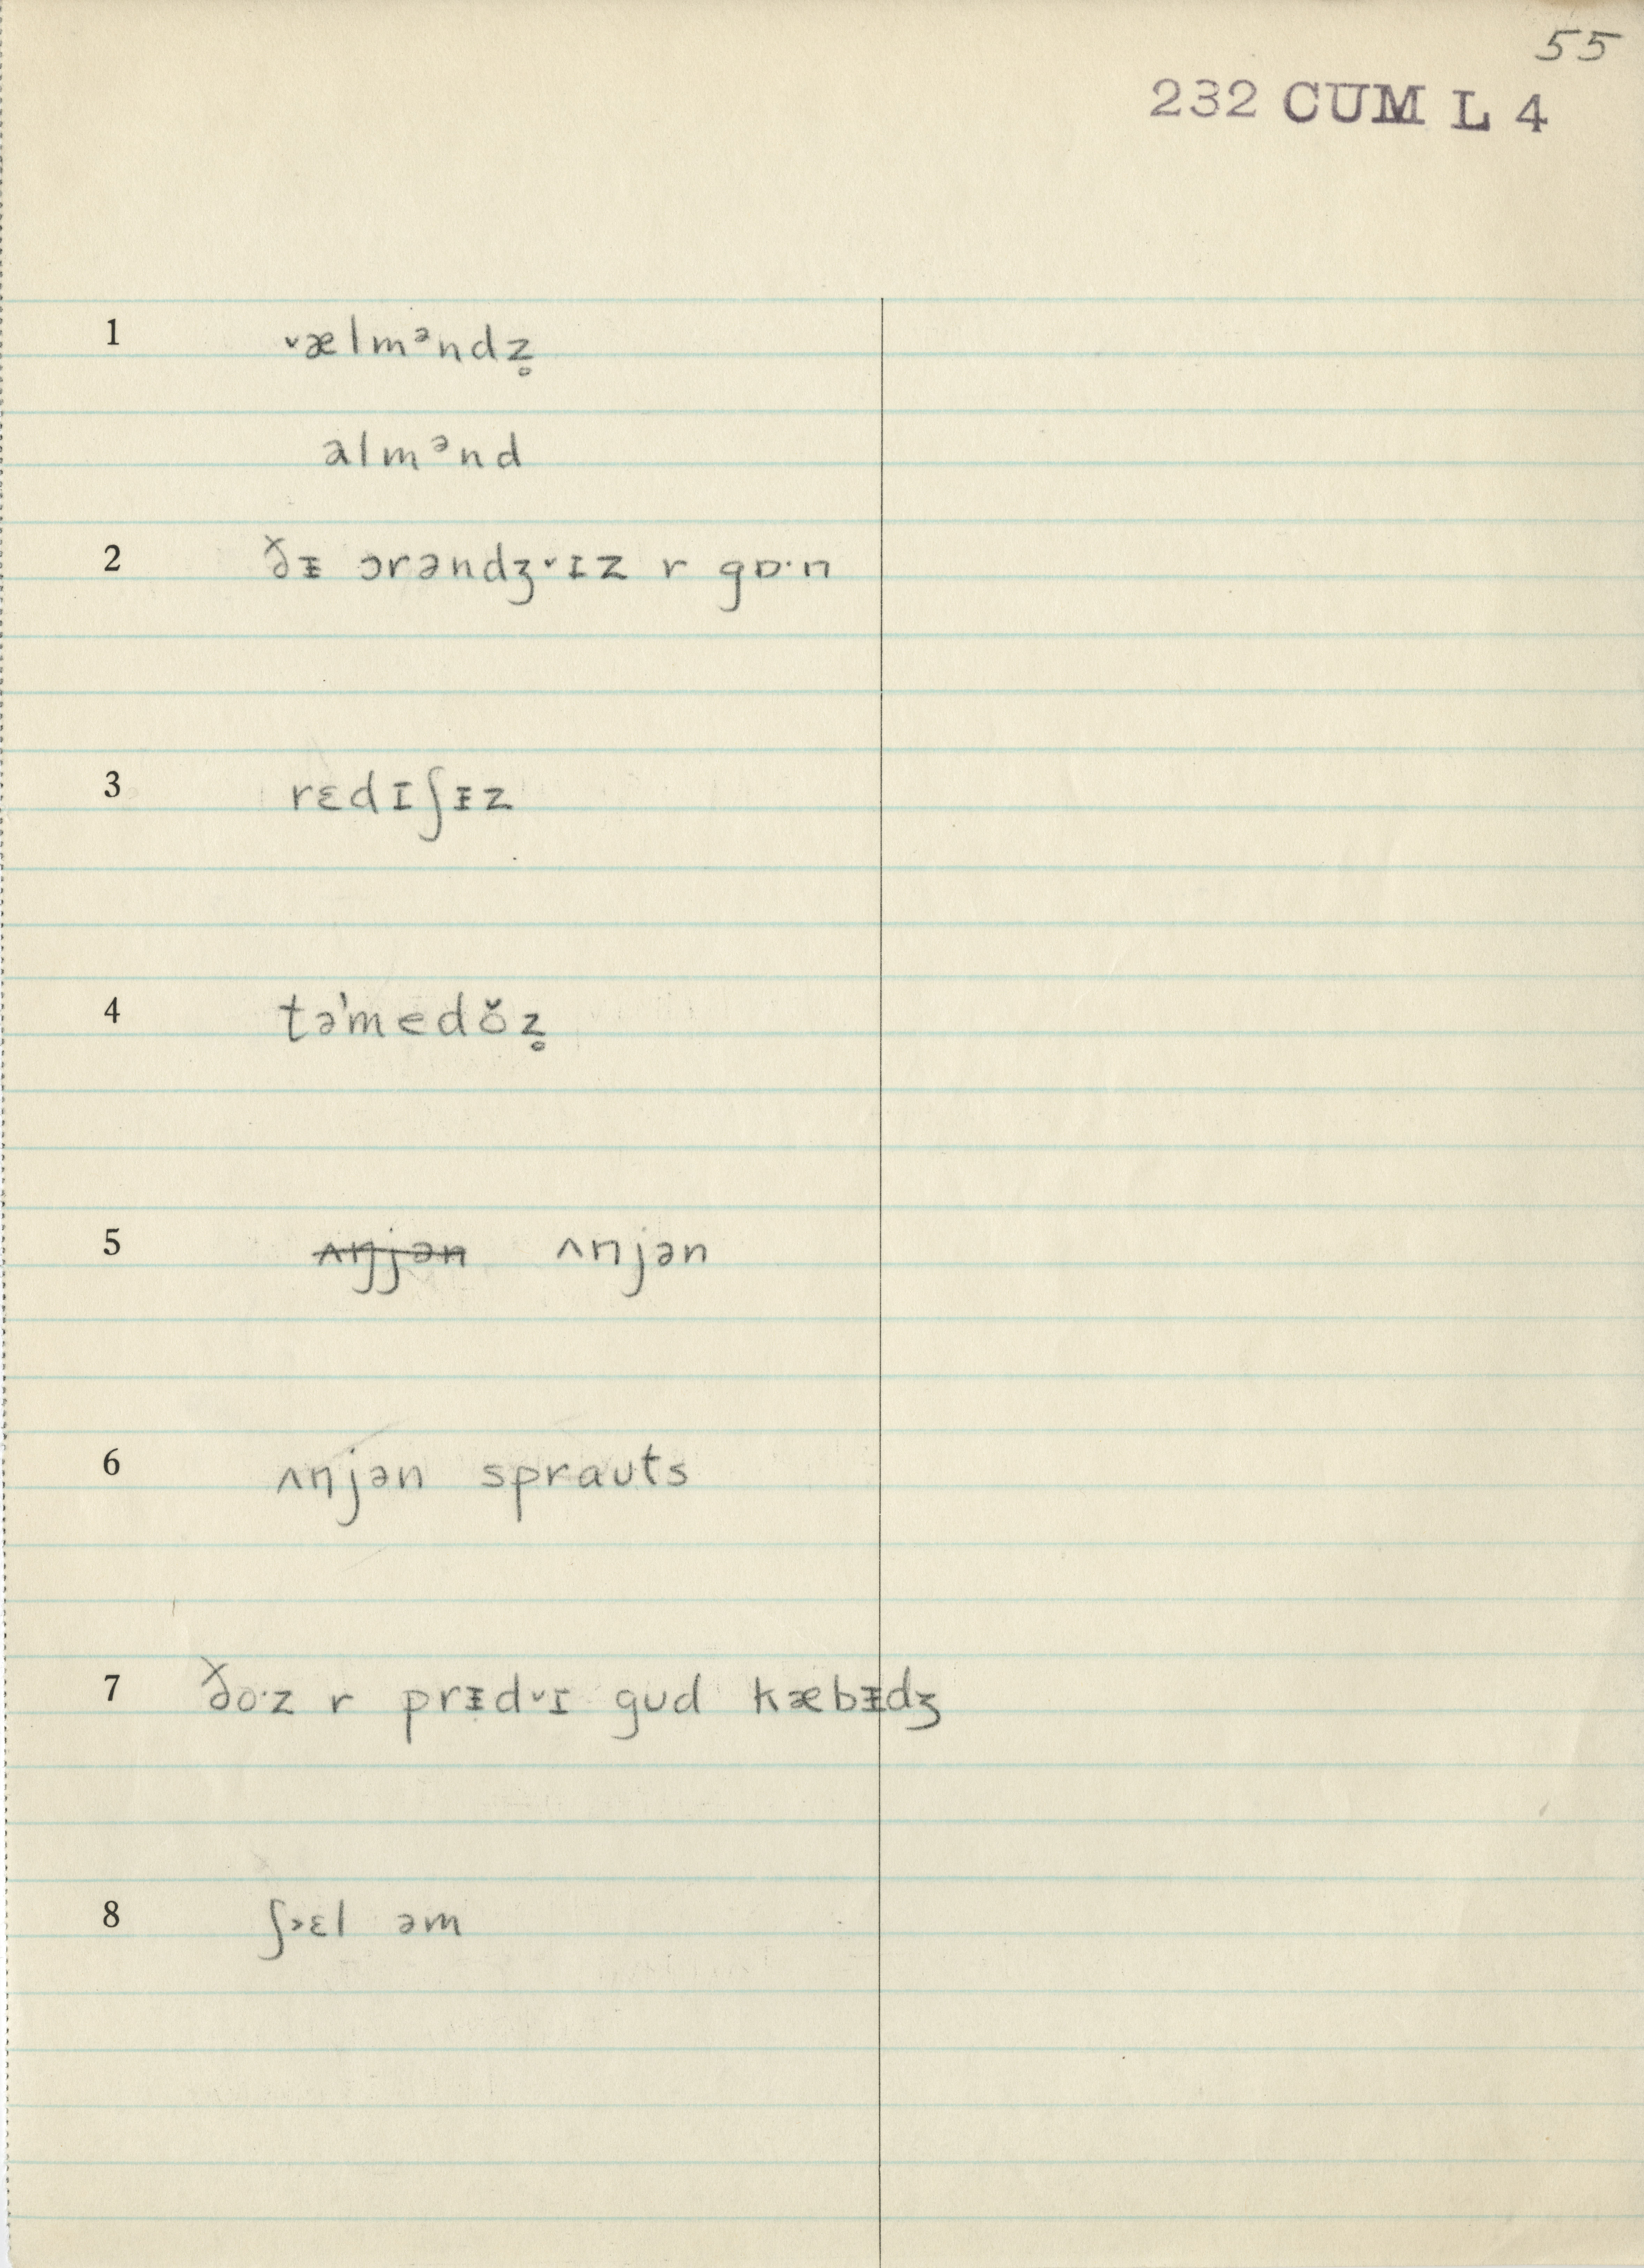 55
232 CUM L 4
1 ˅ælmᵊndz̥
almᵊnd
2 ðᵻ ɔrəndʒ˅ɪz r gɒ·n
3 rɛdɪʃᵻz
4 tə'medŏz̥
5 ~~ʌŋjən~~ ʌnjən
6 ʌnjən sprauts
7 ðo·z r prᵻd˅ɪ gud kæbᵻdʒ
8 ʃ˃ɛl əm